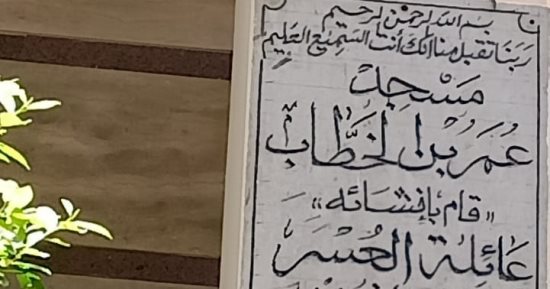 بسم الله الرحمن الرحيم
ربنا تقبل منا انك أنت السميع العليم
مَسْجِدْ
عُمَرُ بْنُ الخَطَّابْ
«قام بإنشائه»
عَائِلة العُسَرَ